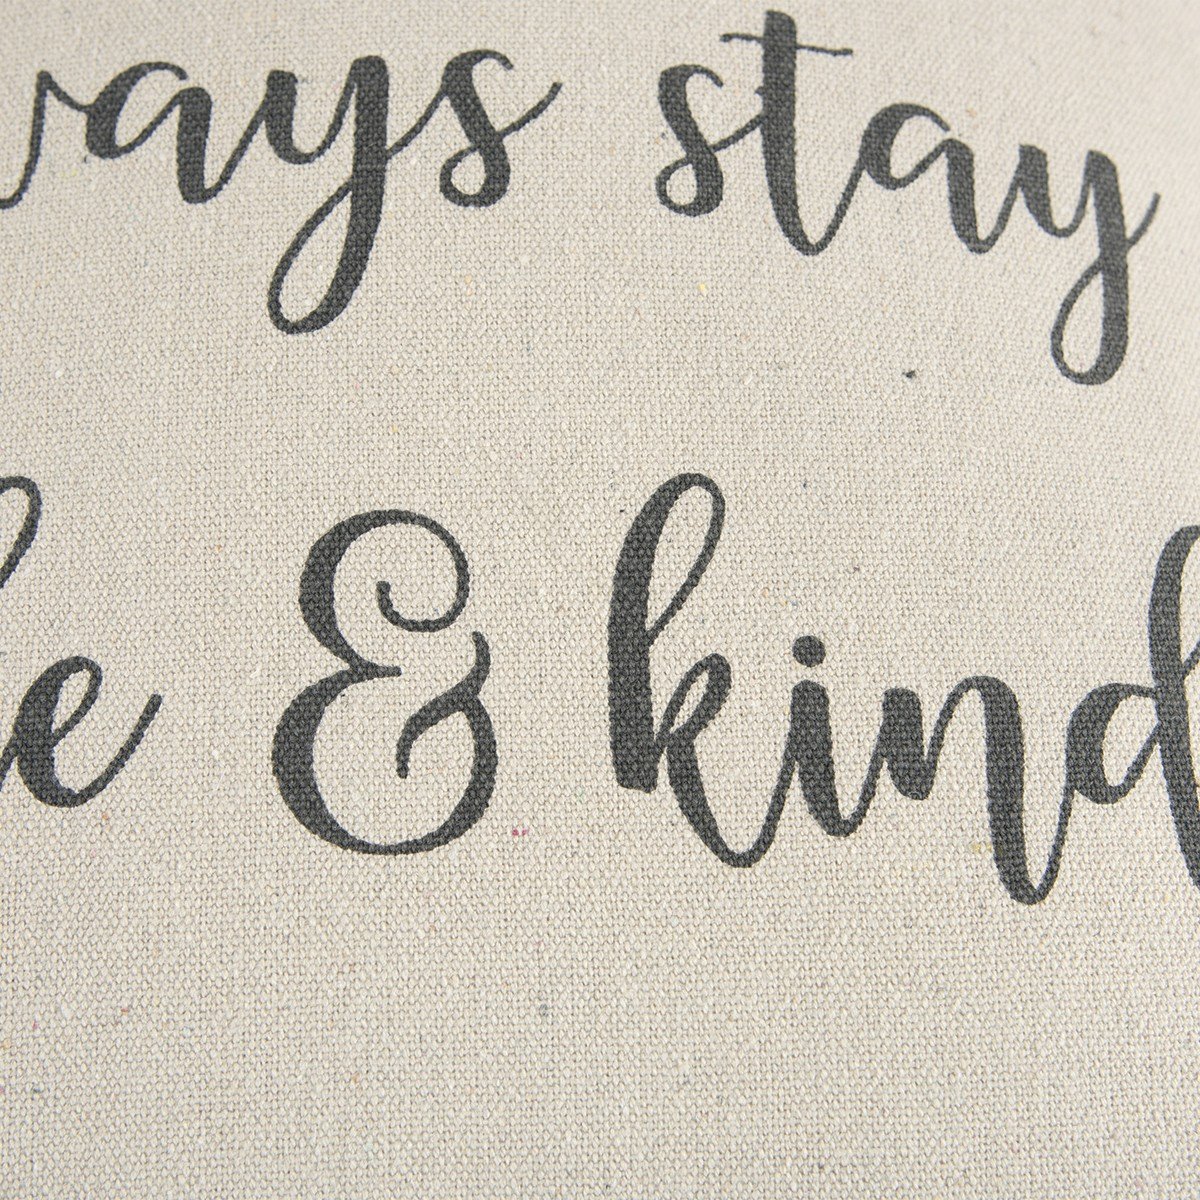 ways stay
& kind